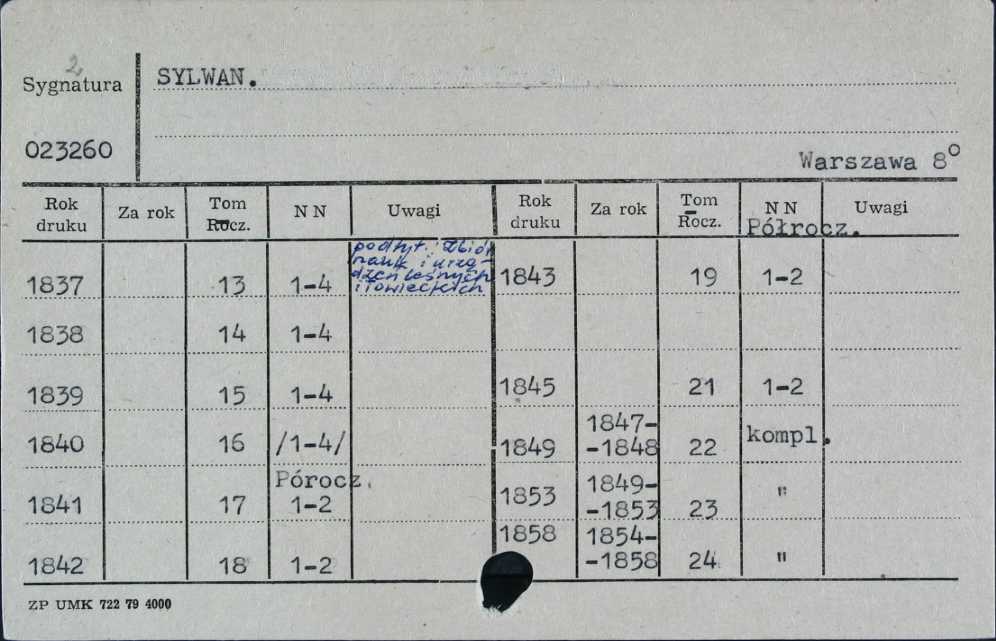 2
Sygnatura SYLWAN.
023260
Warszawa 8°
Rok druku Za rok Tom Rocz. N N Uwagi Rok druku Za rok Tom Rocz. N N Uwagi
Półrocz.
1837 13 1-4 podtyt. Zbiór nauk i urzą-dzeń leśnych i łowieckich 1843 19 1-2
1838 14 1-4
1839 15 1-4 1845 21 1-2
1840 16 /1-4/ 1849 1847--1848 22 kompl.
Pórocz.
1841 17 1-2 1853 1849--1853 23 "
1842 18 1-2 1858 1854--1858 24 "
ZP UMK 722 79 4000